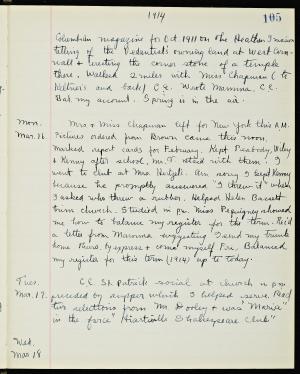 1914
105
Columbian magazine for Oct 1911 on the Heathen Invasion
telling of the Vedantists owning land at West Corn-
wall & erecting the corner stone of a temple
there. Walked 2 miles with Miss Chapman (to
and back) C.E. Wrote Mamma, C.E.
Bal. my account. Spring is in the air.
Mon.
Mar. 16.
Mrs & Miss Chapman left for New York this A.M.
Pictures ordered from Brown came this noon.
Marked report cards for February. Kept Peabody, Wiley
& Kenny after school. M.T. staid with them. I
went to at Mrs. am sorry I kept Kenny
because he promptly answered "I threw it" when
I asked who threw a rubber. Helped Helen Bassett
church. Studied in p.m. Miss showed
me how to balance my register for the term. Rec'd
a letter from Mamma suggesting I send my trunk
home Thurs. by express & come myself Fri. Balanced
my register for this term (1914) up to today.
Tues.
Mar. 17.
C.E. St. Patrick social at church in p.m.
preceded by supper which I helped serve. Read
two selections from Mr. Dooley & was "Maria"
in the farce "Shakespeare Club"
Wed.
Mar 18